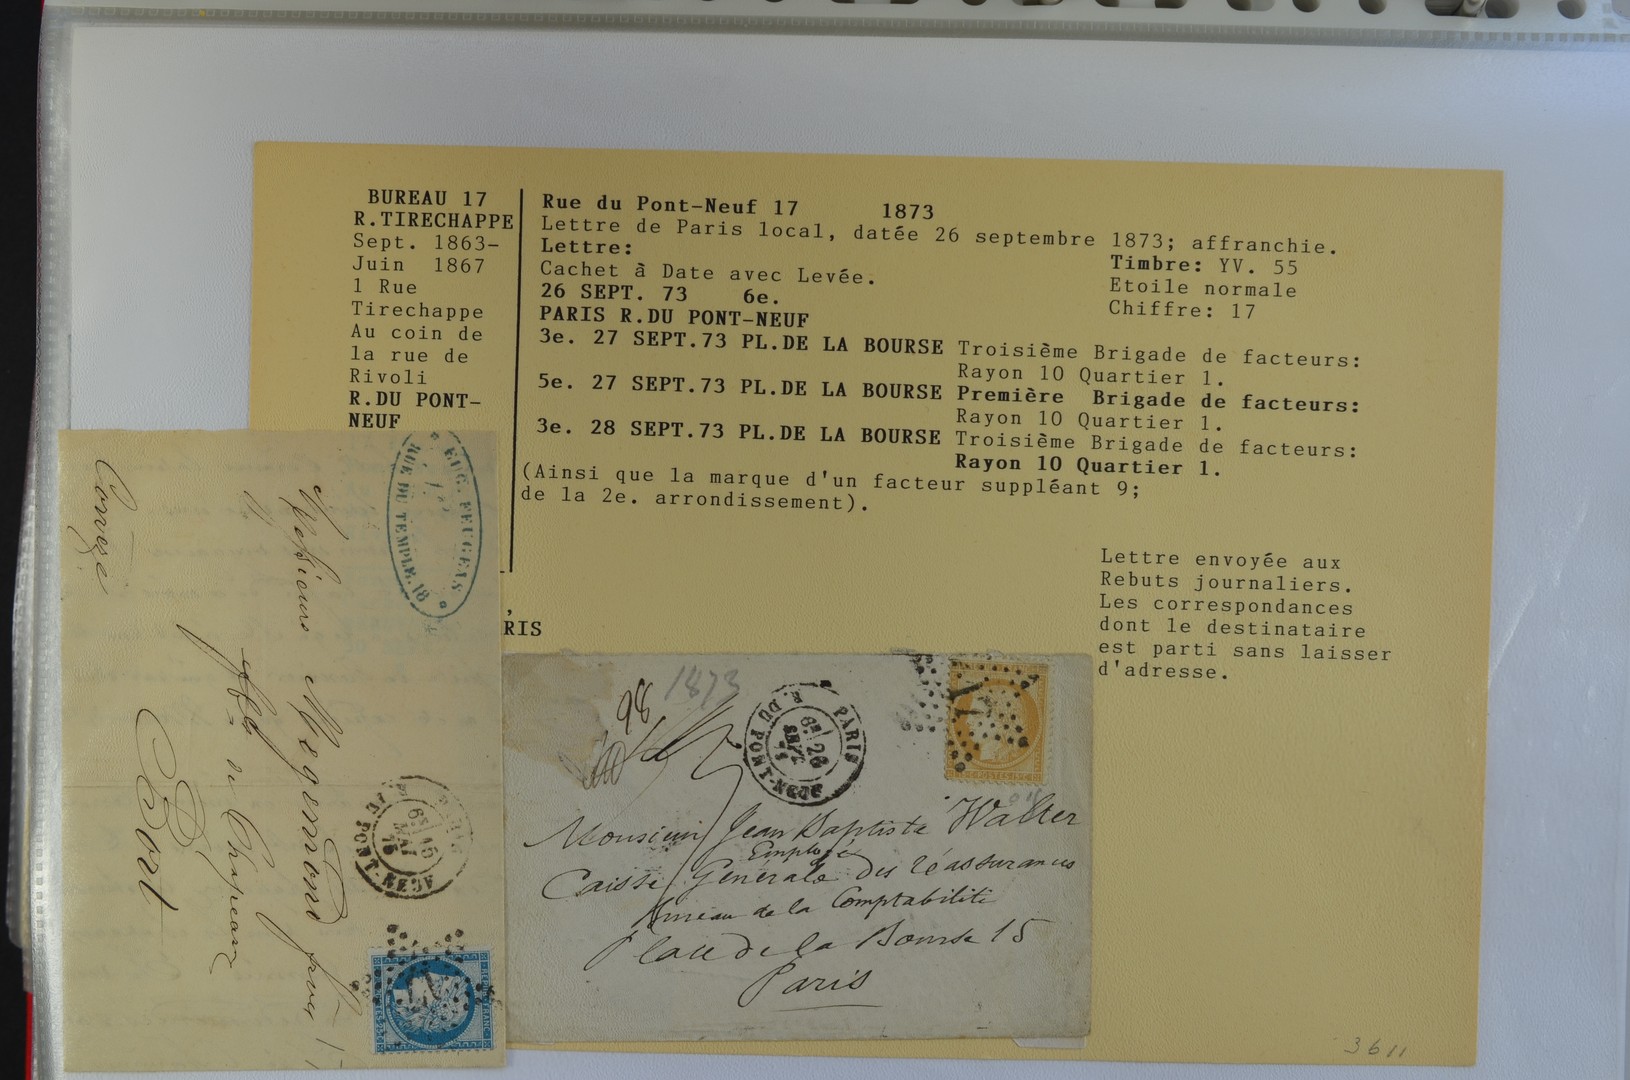 BUREAU 17
R.TIRECHAPPE
Sept. 1863-
Juin 1867
1 Rue
Tirechappe
Au coin de
la rue de
Rivoli
R.DU PONT-
NEUF
RIS
Rue du Pont-Neuf 17 1873
Lettre de Paris local, datée 26 septembre 1873; affranchie.
Lettre: Timbre: YV. 55
Cachet à Date avec Levée. Etoile normale
26 SEPT. 73 6e. Chiffre: 17
PARIS R.DU PONT-NEUF
3e. 27 SEPT.73 PL.DE LA BOURSE Troisième Brigade de facteurs:
Rayon 10 Quartier 1.
5e. 27 SEPT.73 PL.DE LA BOURSE Première Brigade de facteurs:
Rayon 10 Quartier 1.
3e. 28 SEPT.73 PL.DE LA BOURSE Troisième Brigade de facteurs:
Rayon 10 Quartier 1.
(Ainsi que la marque d'un facteur suppléant 9;
de la 2e. arrondissement).
Lettre envoyée aux
Rebuts journaliers.
Les correspondances
dont le destinataire
est parti sans laisser
d'adresse.
EUG. FEUGEAS
RUE DU TEMPLE, 81
Messieurs Megemond frères
de Chapeaux
Bort
Corrèze
PARIS
R. DU PONT-NEUF
17
98
1873
PARIS
R. DU PONT-NEUF
6E 26 SEPT. 73
17
POSTES
Monsieur Jean Baptiste Walter
Employé
Caisse Générale des réassurances
Bureau de la Comptabilité
Place de la Bourse 15
Paris
3611